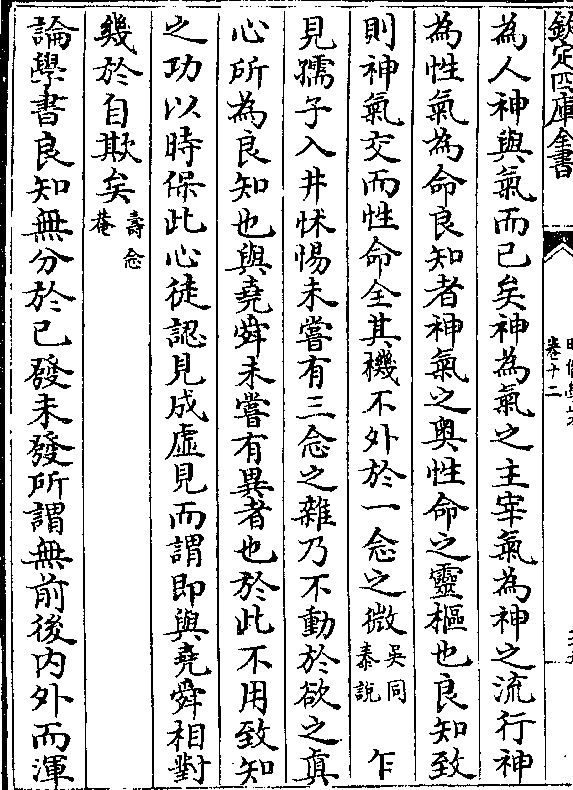 欽定四庫全書
卷十二
為人神與氣而已矣神為氣之主宰氣為神之流行神
為性氣為命良知者神氣之奧性命之靈樞也良知致
則神氣交而性命全其機不外於一念之微吳同泰說 乍
見孺子入井怵惕未嘗有三念之雜乃不動於欲之真
心所為良知也與堯舜未嘗有異者也於此不用致知
之功以時保此心徒認見成虛見而謂即與堯舜相對
幾於自欺矣壽念菴
論學書良知無分於已發未發所謂無前後内外而渾